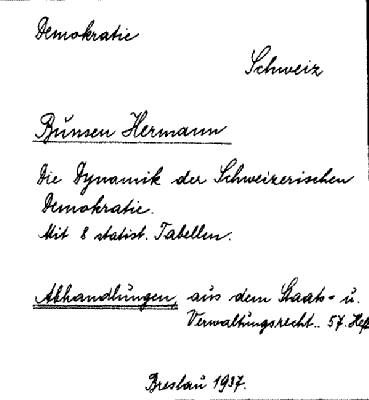 Demokratie
Schweiz
Bunsen Hermann
Die Dynamik der Schweizerischen
Demokratie.
Mit 8 statist. Tabellen.
Abhandlungen, aus dem Staats- u.
Verwaltungsrecht.. 57. Hef
Breslau 1937.